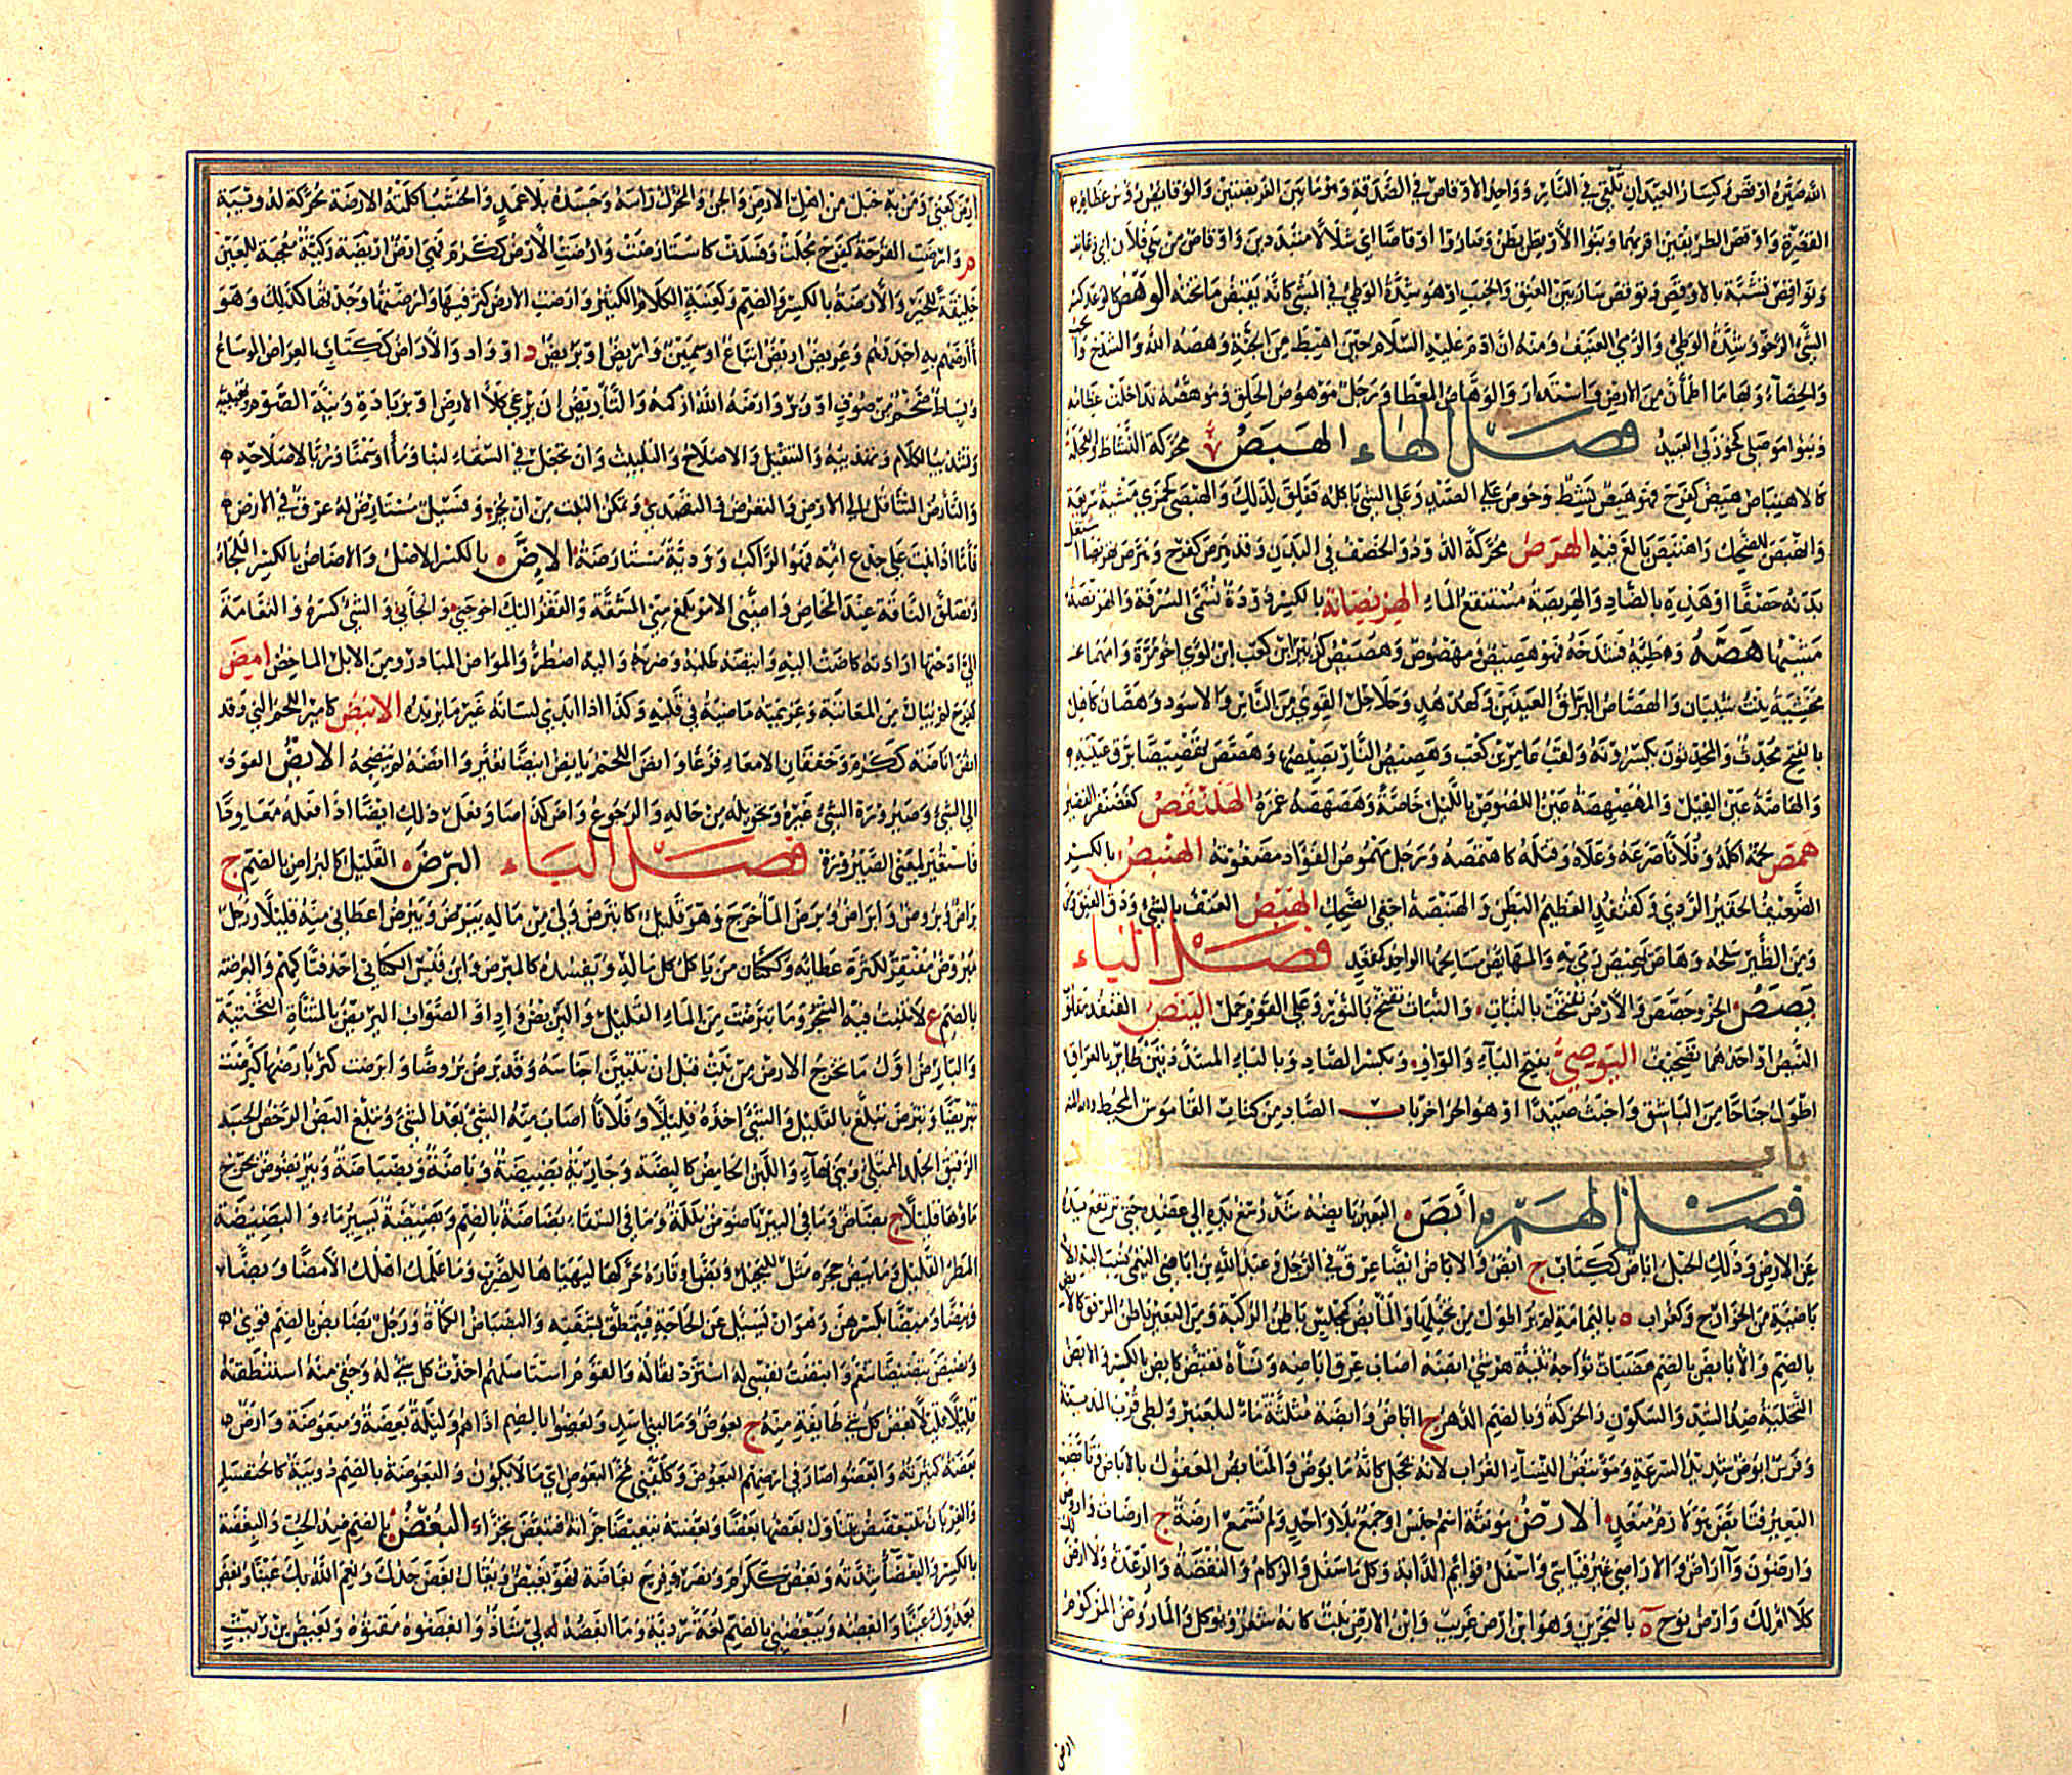 الله صيره اوقص وكسار العيدان تلقى في النار وواحد الاوقاص في الصدقة وهو ما بين الفريضتين والوقايص رؤس عظام
القصرة واوقص الطريقين اقربهما وبنو الاوقص بطن وصاروا اوقاصا اي شلالا متبددين واوقاص من بني فلان اي زعانف
وتواقص تشبه بالاوقص وتوقص سار بين العنق والخبب او هو شدة الوطئ في المشي كانه يقص ما تحته الوهص كالوعد كسر
الشئ الرخو وشدة الوطئ والرمي العنيف ومنه ان ادم عليه السلام حين اهبط من الجنة وهصه الله والشدخ
والخصاء وبهاء ما اطمأن من الارض واستدار والوهاص المعطاء ورجل موهوص الخلق وموهصه تداخلت عظامه
وبنو موهصى كخوزلى العبيد فصل الهاء الهبص محركة النشاط والعجلة
كالاهتباص هبص كفرح فهو هبص نشط وحرص على الصيد وعلى الشئ ياكله فقلق لذلك والهبصى كجمزى مشية سريعة
وانهبص للضحك واهتبص بالغ فيه الهرص محركة الدود والحصف في البدن وقد هرص كفرح وهرص تهريصا اشتعل
بدنه حصفا او هذه بالضاد والهريصة مستنقع الماء الهرنصانة بالكسر دودة تسمى السرفة والهرنصة
مشيتها هصه وطئه فشدخه فهو هصيص ومهصوص وهصيص كزبير ابن كعب ابن لؤي اخو مرة وامهما
مخشية بنت شيبان والهصاص البراق العينين وكهدهد وحلاحل القوي من الناس والاسود وهصان كامل
بالفتح محدث والمحدثون يكسرونه ولقب عامر بن كعب وهصيص النار بصيصها وهصهص تهصيصا برق عينيه
والهاصة عين الفيل والمهصهصة عين اللصوص بالليل خاصة وهصهصه غمزه الهلنقص كغضنفر القصير
همص لحمه اكله وفلانا صرعه وعلاه وقتله كاهتمصه ورجل مهموص الفؤاد مضغوته الهنبص بالكسر
الضعيف الحقير الردي وكقنفذ العظيم البطن والهنبصة اخفى الضحك الهيص العنف بالشئ ودق العنق
ومن الطير سلحه وهاص يهيص رمى به والمهايص مسالحها الواحد كمقعد فصل الياء
يصص الجرو جصص والارض تفتحت بالنبات والنبات تفتح بالنور وعلى القوم حمل الينص القنفذ مقلوب
النيص او احدهما تصحيف اليوصي بفتح الياء والواو وبكسر الصاد وبالياء المشددتين طائر بالعراق
اطول جناحا من الباشق واخبث صيدا او هو الحر اخر باب الصاد من كتاب القاموس المحيط
باب
فصل الهمزة ابض البعير يابضه شد رسغ يده الى عضده حتى ترتفع يده
عن الارض وذلك الحبل اباض ككتاب ج ابض والاباض ايضا عرق في الرجل وعبد الله بن اباض التميمي نسبت اليه
باضية من الخوارج وكغراب ه باليمامة لم ير اطول من نخيلها والمأبض كمجلس باطن الركبة ومن البعير باطن المرفق كالابض
بالضم والابايض بالضم هضبات تواجه ثنية هرشى ابضه اصاب عرق اباضه ونساه تقبض كابض بالكسر والابض
التخلية ضد الشد والسكون والحركة وبالضم الدهر ج اباض وابضة مثلثة ماء لبلعنبر ولطي قرب المدينة
وفرس ابوض شديد السرعة ومؤتبض النساء الغراب لانه يحجل كانه مأبوض والمتأبض المعقول بالاباض وتأبض
البعير فتأبض هو لازم متعد الارض مؤنثة اسم جنس او جمع بلا واحد ولم تسمع ارضة ج ارضات وارض
وارضون وآراض والاراضي غير قياسي واسفل قوائم الدابة وكل ما سفل والزكام والنفضة والرعدة ولا ارض
لك كلا ام لك وارض نوح ه بالبحرين وهو ابن ارض غريب وابن الارض نبت كانه شعر ويؤكل والمأروض المزكوم
ارض
ارض كعني ومن به خبل من اهل الارض والجن والمحرك راسه وجسده بلا عمد والخشب اكلته الارضة محركة لدويبة
م وارضت القرحة كفرح مجلت وفسدت كاستارضت وارضت الارض ككرم فهي ارض اريضة زكية معجبة للعين
خليقة للخير والارضة بالكسر والضم وكعنبة الكلأ الكثير وارضت الارض كثر فيها وارضتها وجدتها كذلك وهو
آرضهم به اجدرهم وعريض اريض اتباع او سمين واريض او يريض د او واد والاراض ككتاب العراض الوساع
وبساط ضخم من صوف او وبر وآرضه الله ازكمه والتأريض ان يرعى كلأ الارض او يرتاده ونية الصوم وتهيئته
وتشذيب الكلام وتهذيبه والتثقيل والاصلاح والتلبيث وان تجعل في السقاء لبنا او ماء او سمنا وربا لاصلاحه
والتأرض التثاقل الى الارض والتعرض والتصدي وتمكن النبت من ان يجز وفسيل مستأرض له عرق في الارض
فاما اذا نبت على جذع امه فهو الراكب وودية مستأرضة الاض بالكسر الاصل والاضاض بالكسر الملجأ
وتصلق الناقة عند المخاض واضني الامر بلغ مني المشقة والفقر اليك احوجني والجأني والشئ كسره والنعامة
الى ادحيها ارادته كآضت اليه وايتضه طلبه وضربه واليه اضطر والمؤاض المبادر ومن الابل الماخض امض
كفرح لم يبال من المعاتبة وعزيمته ماضية في قلبه وكذا اذا ابدى لسانه غير ما يريده الانيض كامير اللحم الني وقد
انض اناضة ككرم وخفقان الامعاء فزعا وانض اللحم يأنض انيضا تغير وآنضه لم ينضجه الايض العود
الى الشئ وصيرورة الشئ غيره وتحويله من حاله والرجوع وآض كذا صار وفعل ذلك ايضا اذا فعله معاودا
فاستعير لمعنى الصيرورة فصل الباء البرض القليل كالبراض بالضم ج
براض وبروض وابراض وبرض الماء خرج وهو قليل كابترض ولي من ماله يبرض ويبرض اعطاني منه قليلا ورجل
مبروض مفتقر لكثرة عطائه وككتان من ياكل كل ماله ويفسده كالمبرض وابن قيس الكناني احد فتاكهم والبرضة
بالضم ع لا تنبت فيه الشجر وما تبرضت من الماء القليل والبريض واد او الصواب اليريض بالمثناة التحتية
والبارض اول ما تخرج الارض من نبت قبل ان تتبين اجناسه وقد برض بروضا وابرضت كثر بارضها كبرضت
تبريضا وتبرض تبلغ بالقليل والشئ اخذه قليلا وفلانا اصاب منه الشئ بعد الشئ وتبلغ البض الرخص الجسد
الرقيق الجلد الممتلئ وهي بهاء واللبن الحامض كالبضة وجارية بضيضة وباضة وبضباضة وبئر بضوض يخرج
ماؤها قليلا ج بضاض وما في البئر باضوض بللة وما في السقاء بضاضة بالضم وبضيضة يسير ماء والبضيضة
المطر القليل وما يبض حجره مثل للبخيل وبض اوتاره حركها ليهيئها للضرب وما علمك اهلك الا مضا وبضا
وميضا وبيضا بكسرهن وهو ان يسئل عن الحاجة فيتمطق بشفتيه والبضباض الكمأة ورجل بضابض بالضم قوي
وبضض تبضيضا تنعم وابتضضت نفسي له استزدتها له والقوم استأصلتهم اخذت كل شئ له وحقي منه استنظفته
قليلا قليلا بعض كل شئ طائفة منه ج ابعاض وبعضوا بالضم اذاهم وليلة بعضة ومبعوضة وارض
بعضة كثيرته وابعضوا صار في ارضهم البعوض وكلفني مخ البعوض اي ما لا يكون والبعوضة بالضم دويبة كالخنفساء
والغربان تتبعضض يتناول بعضها بعضا وبعضته تبعيضا جزأته فتبعض تجزأ البغض بالضم ضد الحب والبغضة
بالكسر والبغضاء شدته وبغض ككرم ونصر وفرح بغاضة فهو بغيض ويقال بغض جدك ونعم الله بك عينا وبغض
بعدوك عينا وابغضه ويبغضني بالضم لغة رديئة وما ابغضه لي شاذ وابغضوه مقتوه وبغيض بن ريث